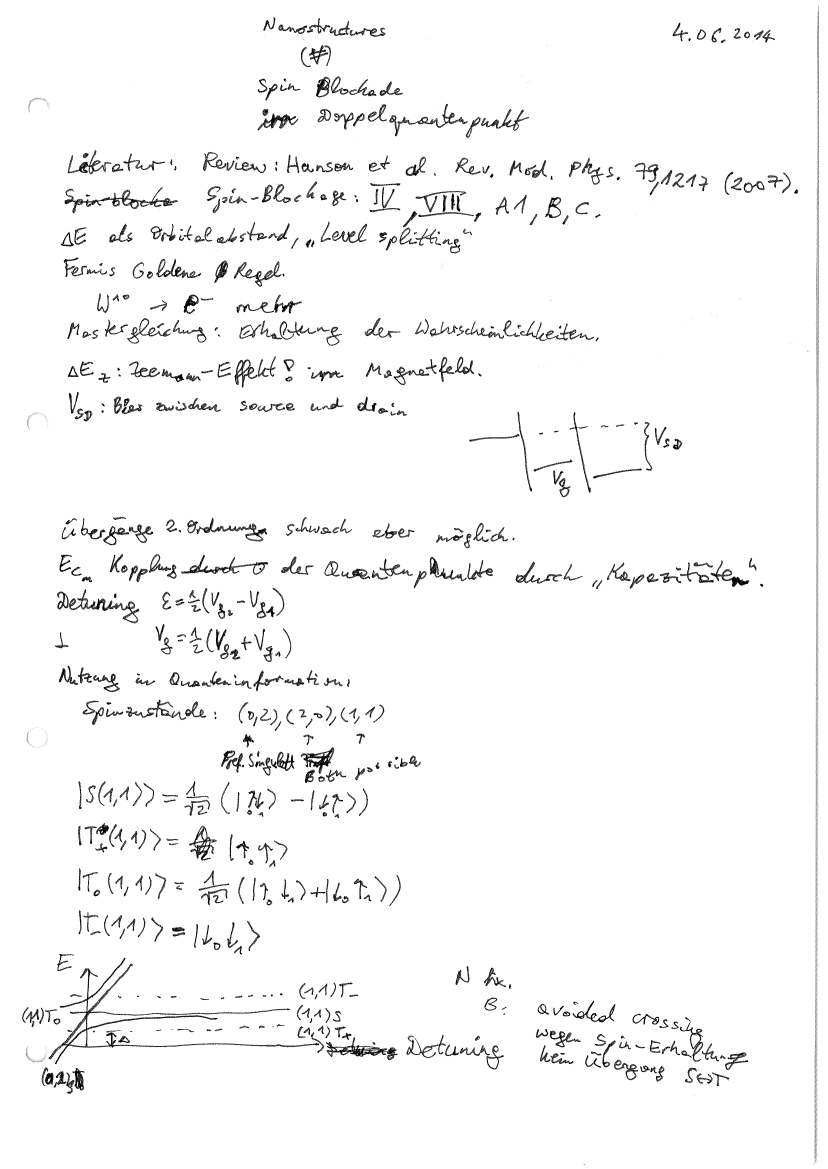 Nanostructures
4.06.2014
(V)
Spin Blockade
im Doppelquantenpunkt
Literatur: Review: Hanson et al. Rev. Mod. Phys. 79, 1217 (2007).
Spin-blocke Spin-Blockage: IV, VIII, A1, B, C.
ΔE als Orbitalabstand, „Level splitting“
Fermis Goldene Regel.
W¹⁰ → e⁻ mehr
Mastergleichung: Erhaltung der Wahrscheinlichkeiten.
ΔE_z: Zeemann-Effekt! im Magnetfeld.
V_SD: Bias zwischen source und drain
V_SD
V_g
Übergänge 2. Ordnung schwach aber möglich.
E_Cm Kopplung durch der Quantenpunkte durch „Kapazitäten“.
Detuning ε=½(V_g2-V_g1)
⊥ V_g=½(V_g2+V_g1)
Nutzung in Quanteninformation:
Spinzustände: (0,2),(2,0),(1,1)
↑ ↑ ↑
Pref. Singulett Both possible
|S(1,1)⟩ = 1/√2 (|↑₀↓₁⟩ - |↓₀↑₁⟩)
|T₊(1,1)⟩ = |↑₀↑₁⟩
|T₀(1,1)⟩ = 1/√2 (|↑₀↓₁⟩+|↓₀↑₁⟩)
|T₋(1,1)⟩ = |↓₀↓₁⟩
E
(1,1)T₋
(1,1)T₀
(1,1)S
(1,1)T₊
Δ
Detuning
N fix.
B: avoided crossing
wegen Spin-Erhaltung
kein Übergang S↔T